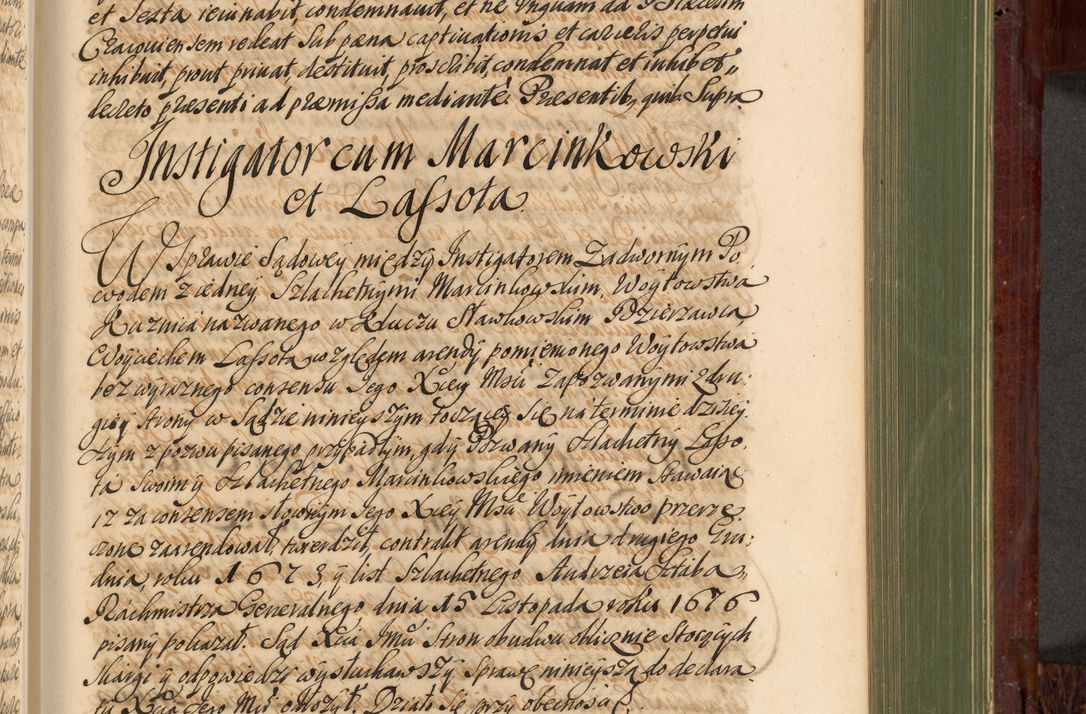 et Sexta reiudicabit, condemnauit, et ne unquam ad Diæcesim
Cracouiensem redeat sub pæna captiuationis et carceris perpetui
inhibuit, prout priuat, destituit, proscribit, condemnat et inhibet,,
decreto præsenti ad præmissa mediante. Præsentib, quib. Supra
Instigator cum Marcinkowski
et Lassota
W Sprawie Sądowey między Instigatorem Zadwornym Po,
wodem z iedney, Szlachetnymi Marcinkowskim, Woytowstwa
Kuznica nazwanego w Kluczu Sławkowskim Dzierzawcą
Woyciechem Lassotą względem arendy pomienionego Woytowstwa
bez wyraznego consensu Jego Xcey Msci Zapozwanymi z dru:
giey strony w Sądzie ninieyszym toczącey się na terminie dzisiey
szym z pozwu pisanego przypadłym, gdy Pozwany Szlachetny Lasso,
ta Swoim y Szlachetnego Marcinkowskiego imieniem stawaiąc
iz za consensem słownym Jego Xcey Msci Woytowstwo przerze,
czone zaarendował, twierdził, contrakt arendy dnia drugiego Gru:
dnia, roku 1673, y list Szlachetnego Andrzeia Sztaba,,
Rachmistrza Generalnego dnia 15 Listopada roku 1676
pisany pokazał. Sąd Xcia Jmci Stron obudwu oblicznie Stoiących
skargi y odpowiedzi wysłuchawszy Sprawę ninieyszą do declara,
tij Xcia Jego Msci odłozył. Działo się przy obecnosci